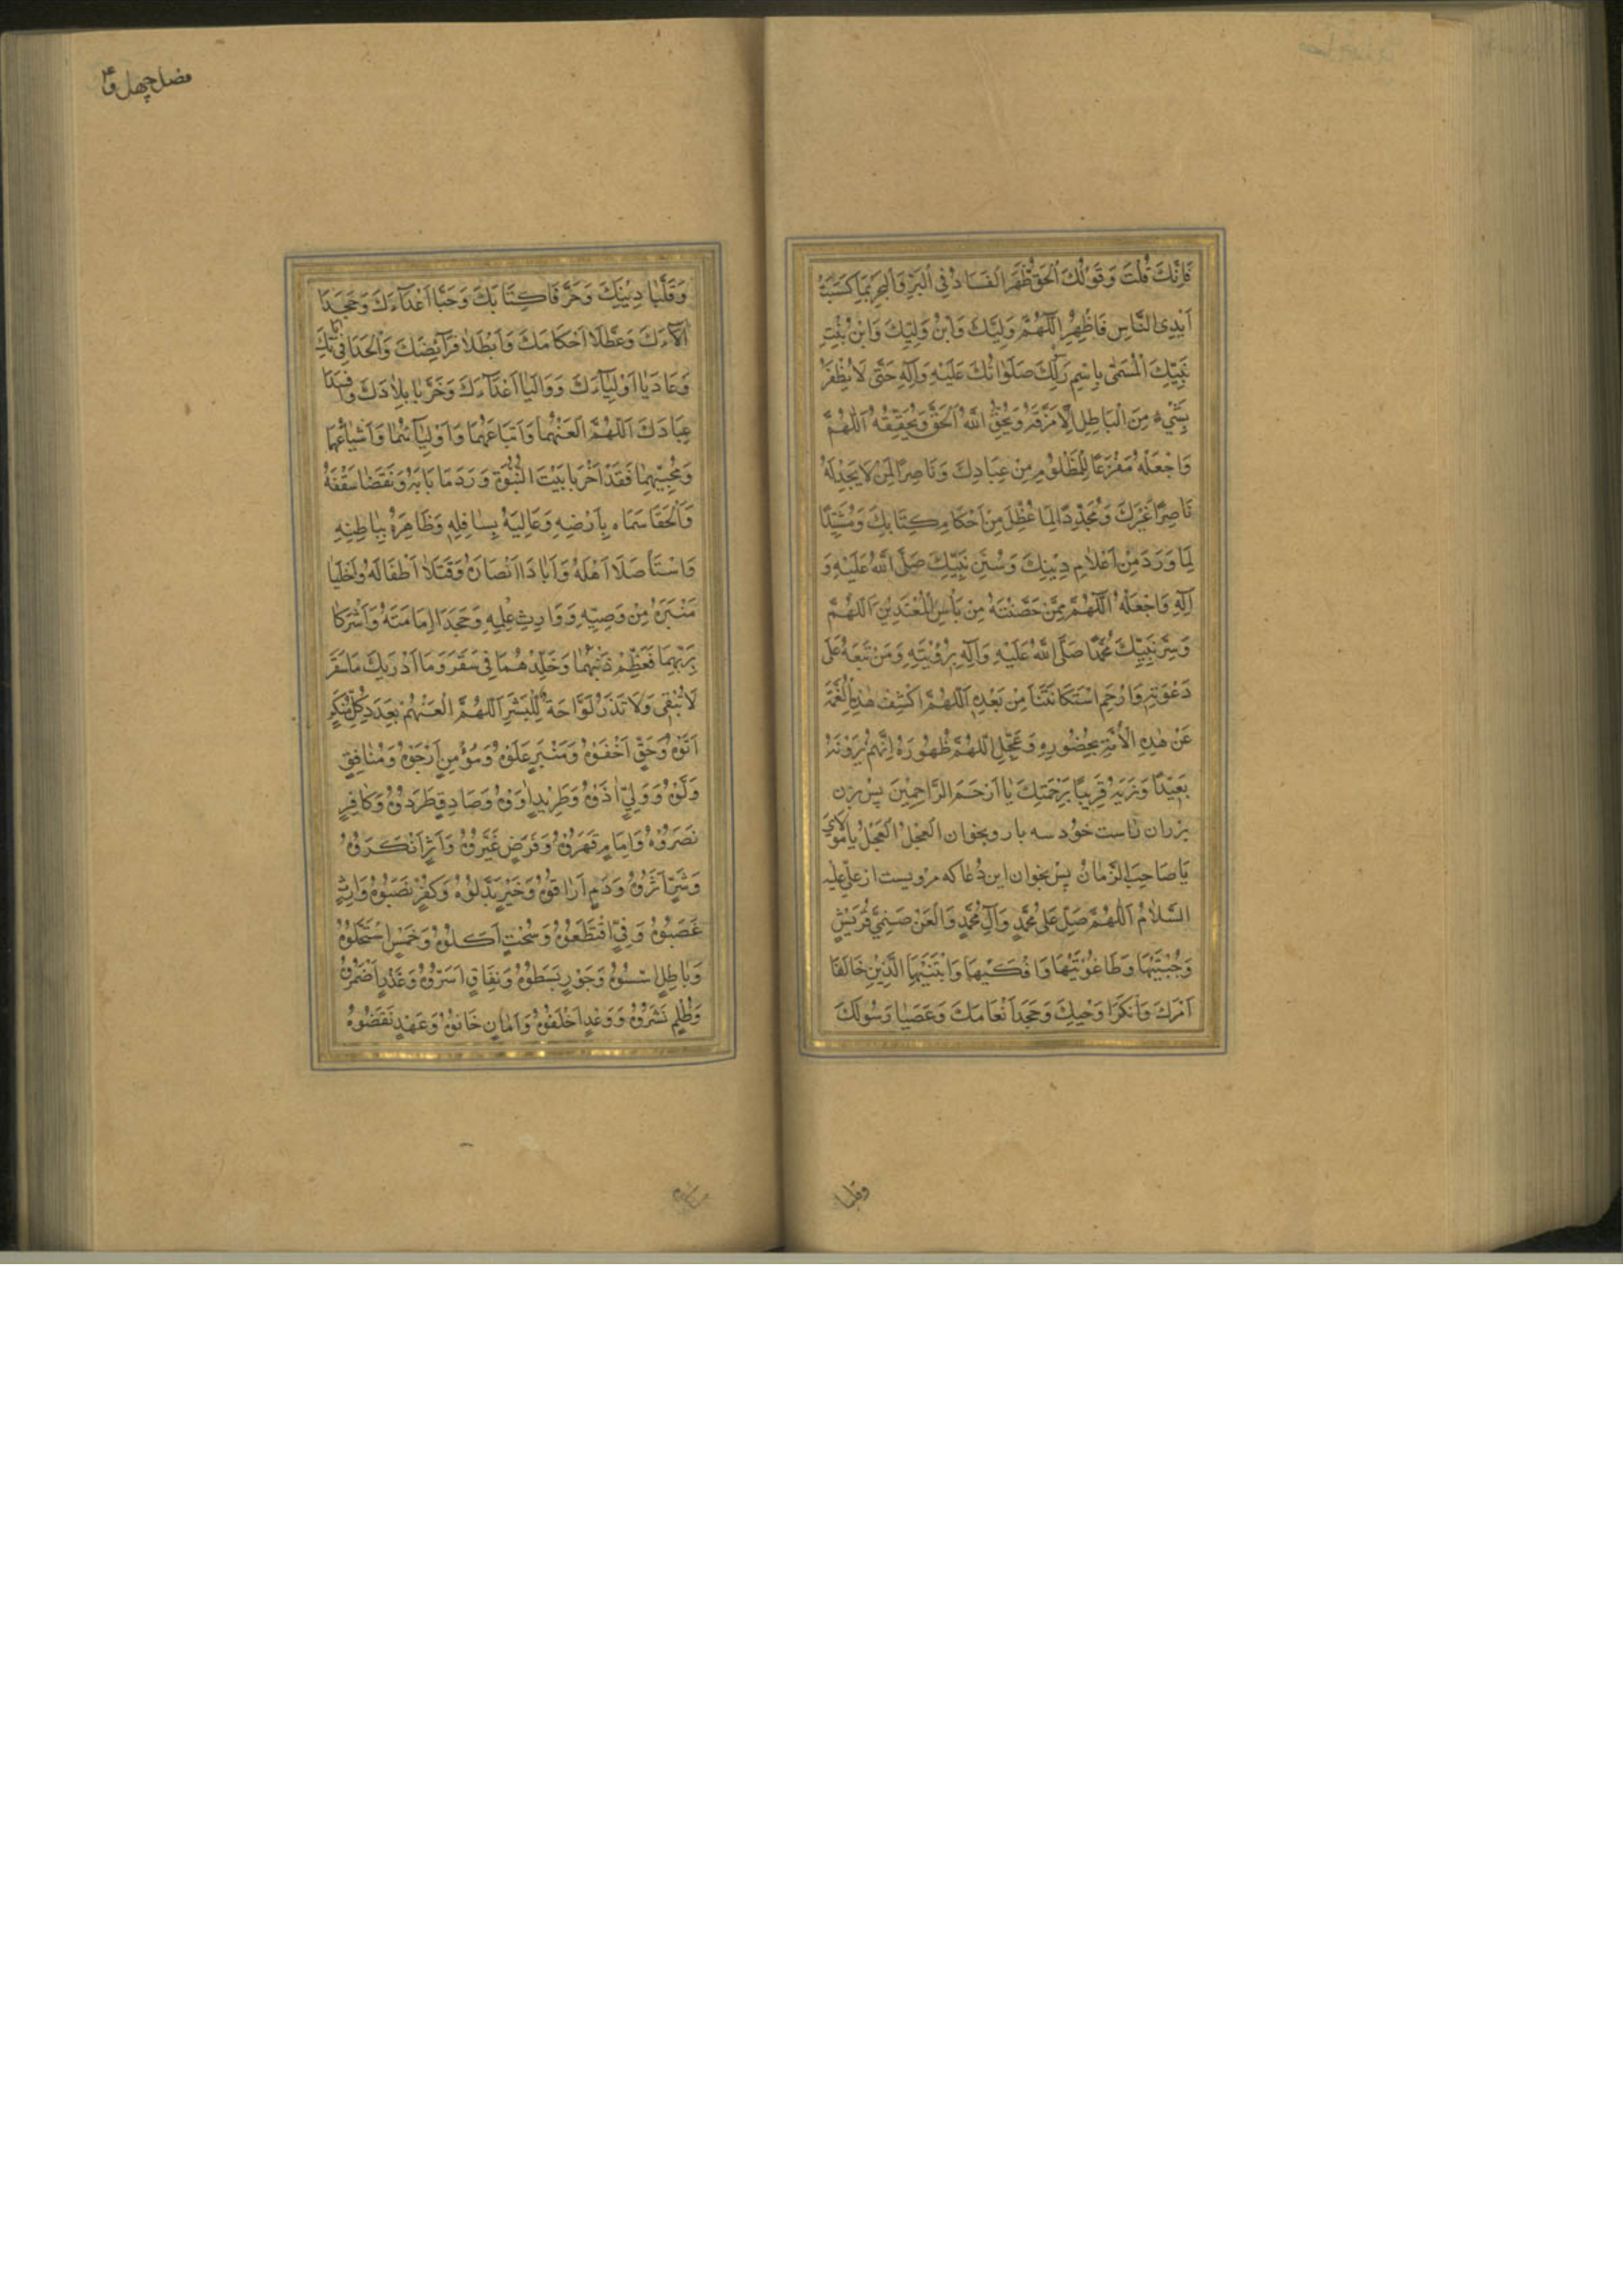 فَاِنَّكَ قُلْتَ وَقَوْلُكَ الْحَقُّ ظَهَرَ الْفَسَادُ فِي الْبَرِّ وَالْبَحْرِ بِمَا كَسَبَتْ
اَيْدِي النَّاسِ فَاَظْهِرِ اللّٰهُمَّ وَلِيَّكَ وَابْنَ وَلِيِّكَ وَابْنَ بِنْتِ
نَبِيِّكَ الْمُسَمّٰى بِاسْمِ رَسُولِكَ صَلَوَاتُكَ عَلَيْهِ وَآلِهِ حَتّٰى لَا يَظْفَرَ
بِشَيْءٍ مِنَ الْبَاطِلِ اِلَّا مَزَّقَهُ وَيُحِقَّ اللّٰهُ الْحَقَّ وَيُحَقِّقَهُ اَللّٰهُمَّ
وَاجْعَلْهُ مَفْزَعًا لِلْمَظْلُومِ مِنْ عِبَادِكَ وَنَاصِرًا لِمَنْ لَا يَجِدُ لَهُ
نَاصِرًا غَيْرَكَ وَمُجَدِّدًا لِمَا عُطِّلَ مِنْ اَحْكَامِ كِتَابِكَ وَمُشَيِّدًا
لِمَا وَرَدَ مِنْ اَعْلَامِ دِينِكَ وَسُنَنِ نَبِيِّكَ صَلَّى اللّٰهُ عَلَيْهِ وَ
آلِهِ وَاجْعَلْهُ اَللّٰهُمَّ مِمَّنْ حَصَّنْتَهُ مِنْ بَأْسِ الْمُعْتَدِينَ اَللّٰهُمَّ
وَسُرَّ نَبِيَّكَ مُحَمَّدًا صَلَّى اللّٰهُ عَلَيْهِ وَآلِهِ بِرُؤْيَتِهِ وَمَنْ تَبِعَهُ عَلٰى
دَعْوَتِهِ وَارْحَمِ اسْتِكَانَتَنَا مِنْ بَعْدِهِ اَللّٰهُمَّ اكْشِفْ هٰذِهِ الْغُمَّةَ
عَنْ هٰذِهِ الْاُمَّةِ بِحُضُورِهِ وَعَجِّلِ اللّٰهُمَّ ظُهُورَهُ اِنَّهُمْ يَرَوْنَهُ
بَعِيدًا وَنَرٰيهُ قَرِيبًا بِرَحْمَتِكَ يَا اَرْحَمَ الرَّاحِمِينَ پس بزن
بر ران راست خود سه بار و بخوان الْعَجَلَ الْعَجَلَ يَا مَوْلَايَ
يَا صَاحِبَ الزَّمَانِ پس بخوان این دعا که مرویست از علی علیه
السَّلَامُ اَللّٰهُمَّ صَلِّ عَلٰى مُحَمَّدٍ وَآلِ مُحَمَّدٍ وَالْعَنْ صَنَمَيْ قُرَيْشٍ
وَجِبْتَيْهَا وَطَاغُوتَيْهَا وَاِفْكَيْهَا وَابْنَتَيْهِمَا الَّذَيْنِ خَالَفَا
اَمْرَكَ وَاَنْكَرَا وَحْيَكَ وَجَحَدَا اِنْعَامَكَ وَعَصَيَا رَسُولَكَ
وقلبا
فصل چهل و
وَقَلَّبَا دِينَكَ وَحَرَّفَا كِتَابَكَ وَحَبَّا اَعْدَاءَكَ وَجَحَدَا
آلَاءَكَ وَعَطَّلَا اَحْكَامَكَ وَاَبْطَلَا فَرَائِضَكَ وَاَلْحَدَا فِي آيَاتِكَ
وَعَادَيَا اَوْلِيَاءَكَ وَوَالَيَا اَعْدَاءَكَ وَخَرَّبَا بِلَادَكَ وَاَفْسَدَا
عِبَادَكَ اَللّٰهُمَّ الْعَنْهُمَا وَاَتْبَاعَهُمَا وَاَوْلِيَاءَهُمَا وَاَشْيَاعَهُمَا
وَمُحِبِّيهِمَا فَقَدْ اَخْرَبَا بَيْتَ النُّبُوَّةِ وَرَدَمَا بَابَهُ وَنَقَضَا سَقْفَهُ
وَاَلْحَقَا سَمَاءَهُ بِاَرْضِهِ وَعَالِيَهُ بِسَافِلِهِ وَظَاهِرَهُ بِبَاطِنِهِ
وَاسْتَأْصَلَا اَهْلَهُ وَاَبَادَا اَنْصَارَهُ وَقَتَلَا اَطْفَالَهُ وَاَخْلَيَا
مِنْبَرَهُ مِنْ وَصِيِّهِ وَوَارِثِ عِلْمِهِ وَجَحَدَا اِمَامَتَهُ وَاَشْرَكَا
بِرَبِّهِمَا فَعَظِّمْ ذَنْبَهُمَا وَخَلِّدْهُمَا فِي سَقَرَ وَمَا اَدْرٰيكَ مَا سَقَرُ
لَا تُبْقِي وَلَا تَذَرُ لَوَّاحَةٌ لِلْبَشَرِ اَللّٰهُمَّ الْعَنْهُمْ بِعَدَدِ كُلِّ مُنْكَرٍ
اَتَوْهُ وَحَقٍّ اَخْفَوْهُ وَمِنْبَرٍ عَلَوْهُ وَمُؤْمِنٍ اَرْجَوْهُ وَمُنَافِقٍ
وَلَّوْهُ وَوَلِيٍّ اٰذَوْهُ وَطَرِيدٍ اٰوَوْهُ وَصَادِقٍ طَرَدُوهُ وَكَافِرٍ
نَصَرُوهُ وَاِمَامٍ قَهَرُوهُ وَفَرْضٍ غَيَّرُوهُ وَاَثَرٍ اَنْكَرُوهُ
وَشَرٍّ اٰثَرُوهُ وَدَمٍ اَرَاقُوهُ وَخَيْرٍ بَدَّلُوهُ وَكُفْرٍ نَصَبُوهُ وَاِرْثٍ
غَصَبُوهُ وَفَيْءٍ اقْتَطَعُوهُ وَسُحْتٍ اَكَلُوهُ وَخُمْسٍ اسْتَحَلُّوهُ
وَبَاطِلٍ اَسَّسُوهُ وَجَوْرٍ بَسَطُوهُ وَنِفَاقٍ اَسَرُّوهُ وَغَدْرٍ اَضْمَرُوهُ
وَظُلْمٍ نَشَرُوهُ وَوَعْدٍ اَخْلَفُوهُ وَاَمَانٍ خَانُوهُ وَعَهْدٍ نَقَضُوهُ